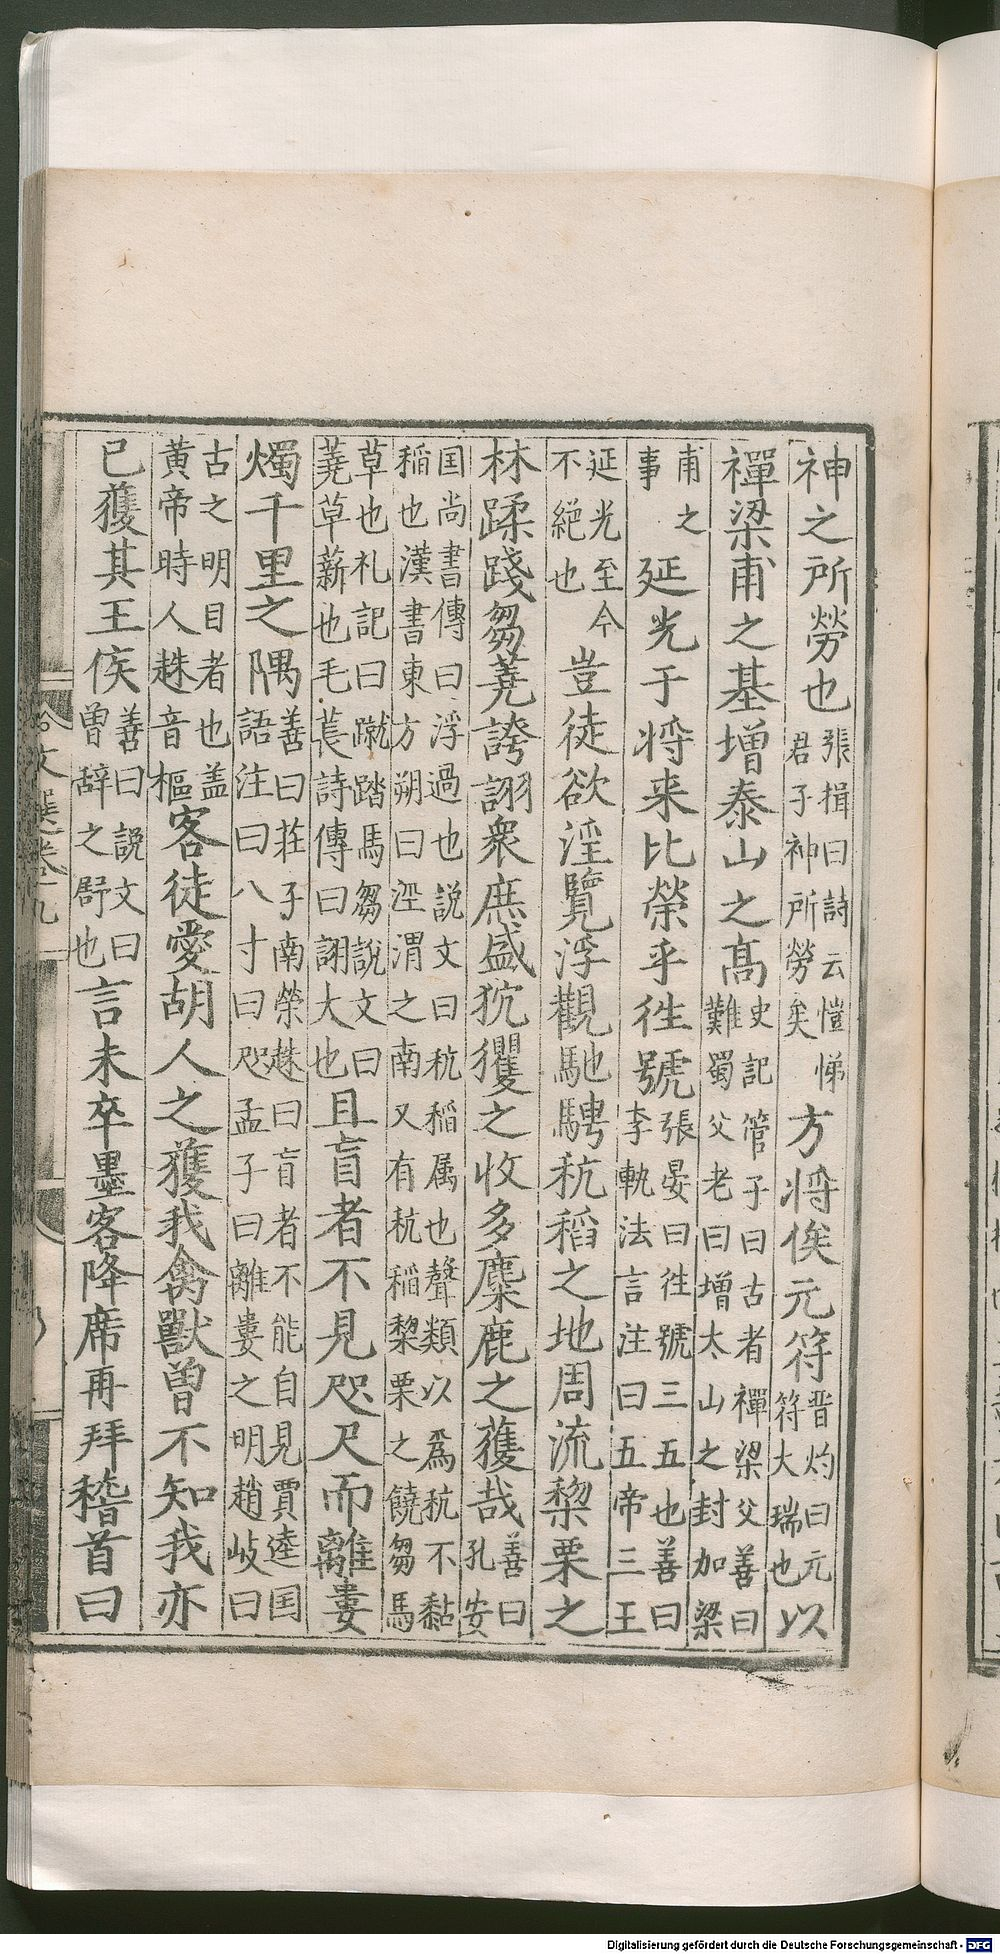 神之所勞也張揖曰詩云愷悌君子神所勞矣方将俟元符晋灼曰元符大瑞也以
禪梁甫之基增泰山之髙史記管子曰古者禪梁父善曰難蜀父老曰增太山之封加梁
甫之事延光于将来比榮乎徃號張晏曰徃號三五也善曰李軌法言注曰五帝三王
延光至今不絕也豈徒欲淫覽浮觀馳騁秔稻之地周流棃栗之
林蹂踐芻蕘誇詡衆庶盛狖玃之收多麋鹿之獲哉善曰孔安
国尚書傳曰浮過也説文曰秔稻属也聲類以爲秔不黏稲也漢書東方朔曰涇渭之南又有秔稲棃栗之饒芻馬
草也礼記曰蹴踏馬芻説文曰蕘草薪也毛萇詩傳曰詡大也且盲者不見咫尺而離婁
燭千里之隅善曰莊子南榮趎曰盲者不能自見賈逵国語注曰八寸曰咫孟子曰離婁之明趙岐曰
古之明目者也盖黄帝時人趎音樞客徒愛胡人之獲我禽獸曽不知我亦
已獲其王侯善曰説文曰曽辞之舒也言未卒墨客降席再拜稽首曰
文選卷九
Digitalisierung gefördert durch die Deutsche Forschungsgemeinschaft - DFG